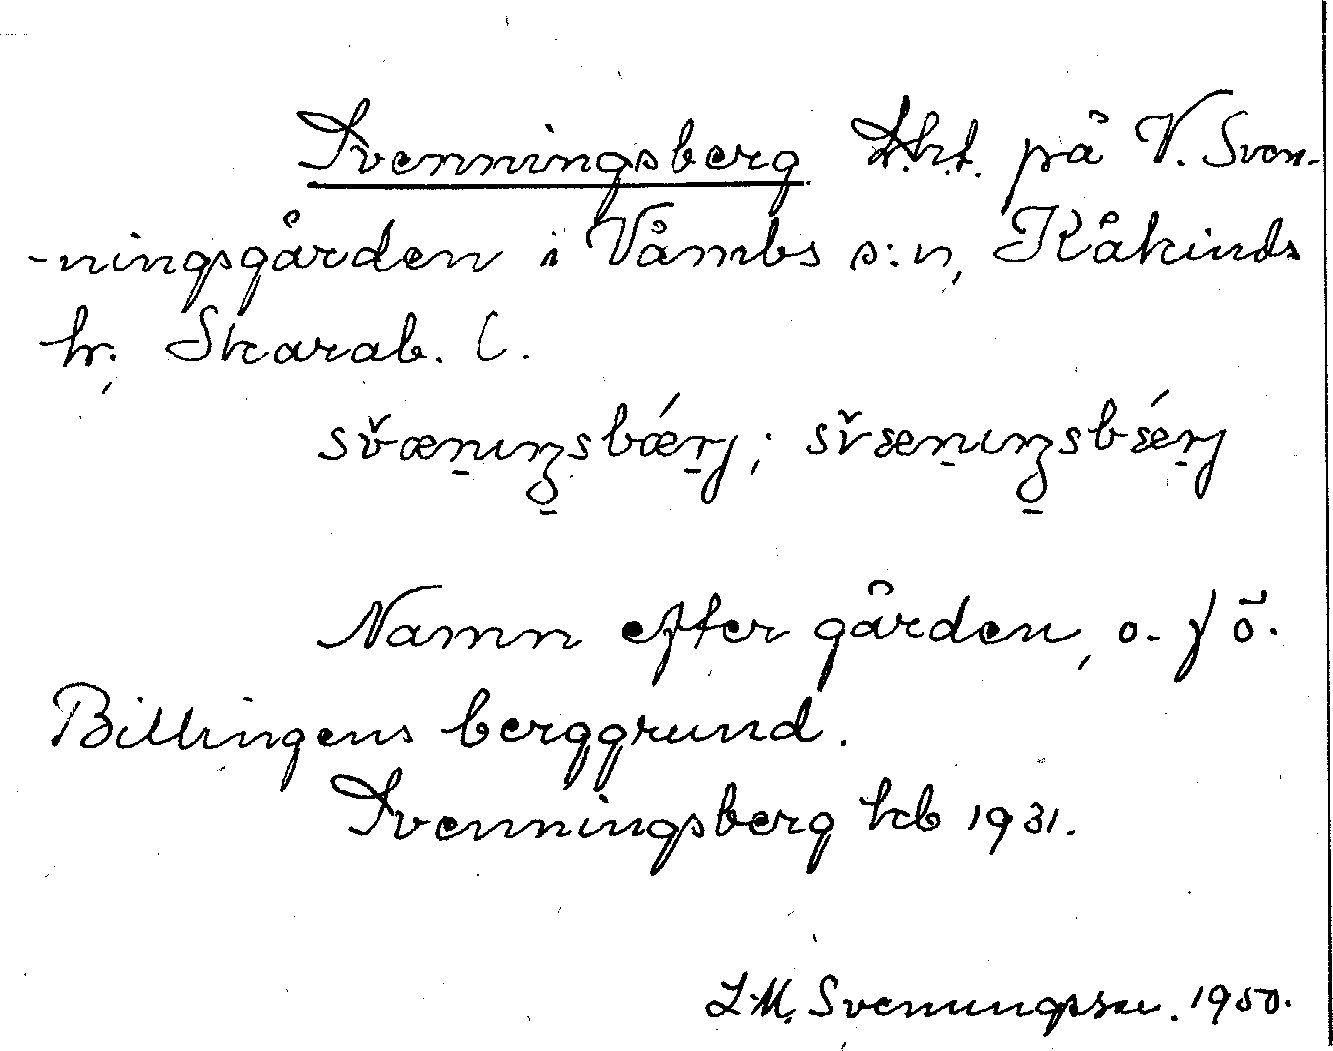 Svenningsberg Lht. på V. Sven-
-ningsgården i Våmbs s:n, Kåkinds
hr. Skarab. l.
sv̌æn̠ıŋsbǽr̠j; sv̌æn̠ıŋsbǽr̠j
Namn efter gården, o.
Billingens berggrund.
Svenningsberg kb 1931.
L.M. Svenungsson. 1950.